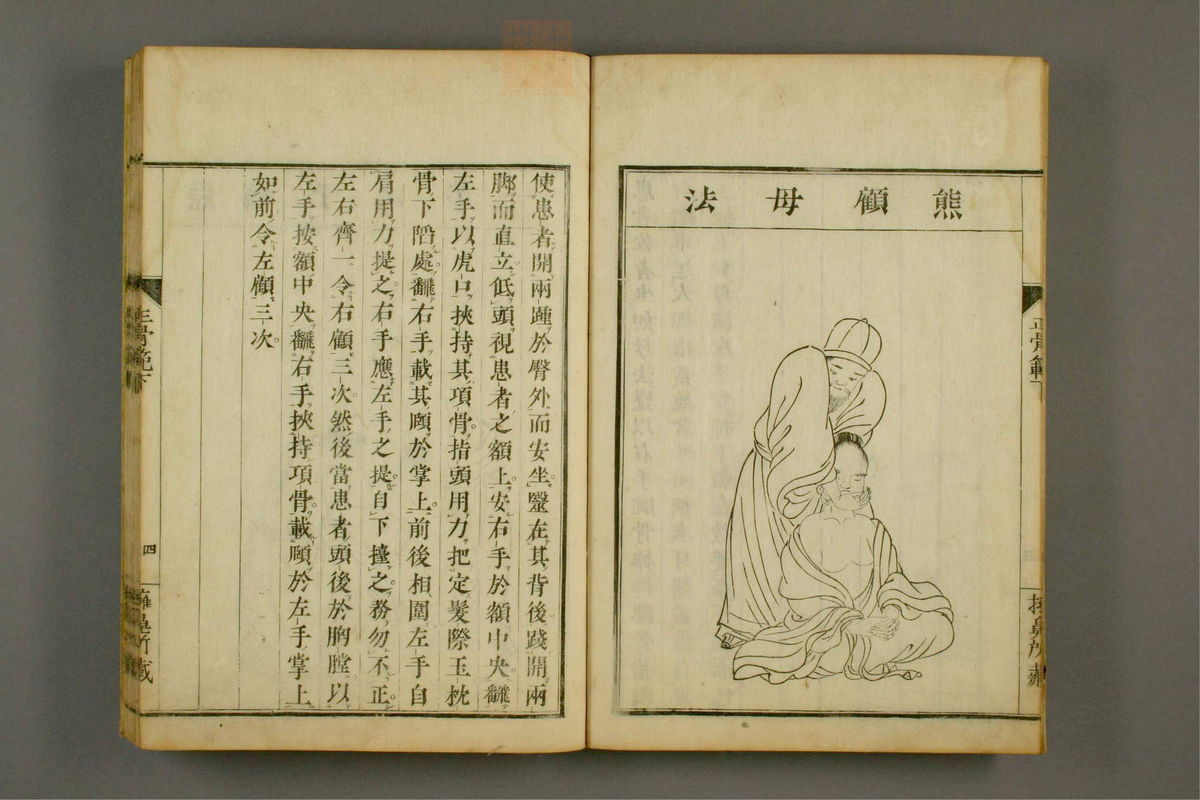 熊顧母法
使患者開兩踵於臀外而安坐。蹵在其背後。踐開兩
脚而直立。低頭視患者之額上。安右手於額中央。飜
左手以虎口挾持其項骨。指頭用力把定髮際玉枕
骨下陷處。飜右手載其頤於掌上。前後相圍左手自
肩用力提之。右手應左手之提。自下擡之。務勿不正。
左右齊一令右顧三次。然後當患者頭後於胸膛以
左手按額中央。飜右手挾持項骨。載頤於左手掌上
如前令左顧三次。
正骨範下
四